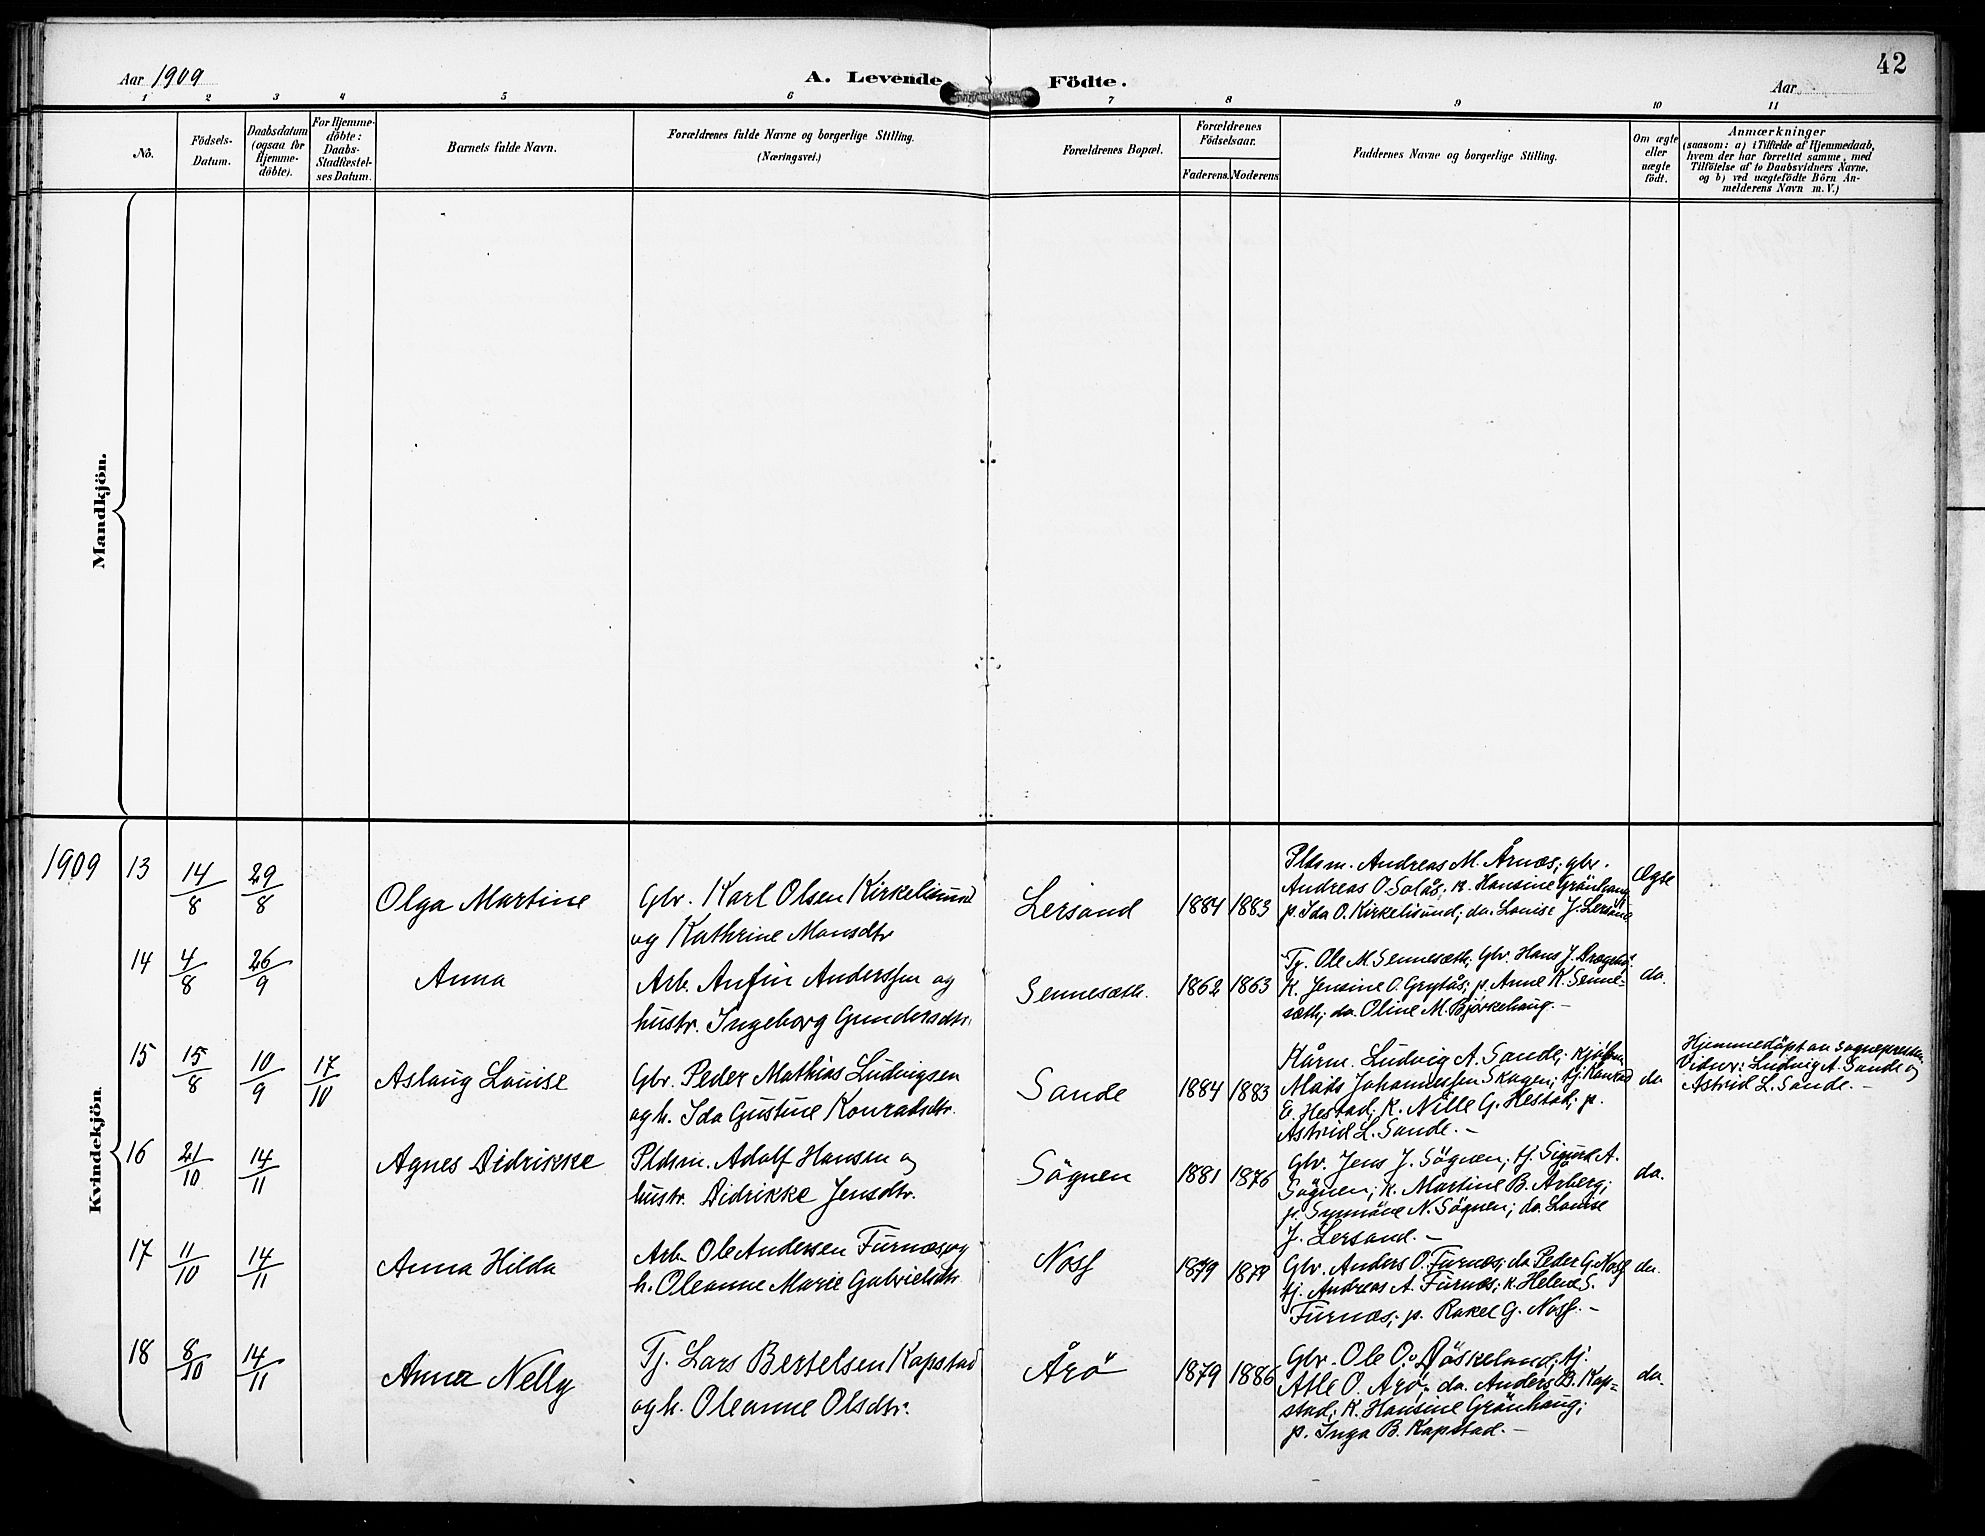 42
Aar 1909
A. Levende Födte.
Aar
1 2 3 4 5 6 7 8 9 10 11
No.
Födsels-Datum.
Daabsdatum (ogsaa for Hjemme-döbte).
For Hjemme-döbte: Daabs-Stadfæstel-ses Datum.
Barnets fulde Navn.
Forældrenes fulde Navne og borgerlige Stilling.
(Næringsvei.)
Forældrenes Bopæl.
Forældrenes Födselsaar.
Faderens. Moderens.
Faddernes Navne og borgerlige Stilling.
Om ægte eller uægte födt.
Anmærkninger
(saasom: a) i Tilfælde af Hjemmedaab,
hvem der har forrettet samme, med
Tilföielse af to Daabsvidners Navne,
og b) ved uægtefödte Börn An-
melderens Navn m. V.)
Mandkjön.
Kvindekjön
1909 13 14/8 29/8 Olga Martine
Gbr. Karl Olsen Kirkelisund
og Kathrine Monsdtr
Lersand 1884 1883
Pldsm. Andreas M. Årnæs; gbr.
Andreas O. Solås; k. Hansine Grönhaug
p. Ida O. Kirkelisund; do. Louise J. Lersand
Ægte
14 4/8 26/9 Anna
Arb. Anfin Anderssen og
hustr. Ingeborg Gundersdtr.
Sennesæth. 1862 1863
Tj. Ole M. Sennesæth; Gbr. Hans J.
K. Jensine O. Grytås; p. Anne K. Senne-
sæth; do. Oline M. Bjørkehaug. –
do.
15 15/8 10/9 17/10 Aslaug Louise
Gbr. Peder Mathias Ludvigsen
og h. Ida Gustine Konradsdtr.
Sande 1884 1883
Kårm. Ludvig A. Sande;
Mats Johannessen Skagen; tj. Konrad
E. Hestad; K. Nille G. Hestad; p.
Astrid L. Sande. –
do
Hjemmedöpt av Sognepresten
Vidner: Ludvig A. Sande og
Astrid L. Sande. –
16 21/10 14/11 Agnes Didrikke
Pldsm. Adolf Hansen og
hustr. Didrikke Jensdtr.
Sögnen 1881 1876
Gbr. Jens J. Sögnen; tj. Sigurd A.
Sögnen; k. Martine B. Årberg;
p. Synnöve N. Sögnen; do. Louise
J. Lersand. –
do.
17 11/10 14/11 Anna Hilda
Arb. Ole Andersen Furnæs og
h. Oleanne Marie Gabrielsdtr
Noss 1879
Gbr. Anders O. Furnæs; do Peder G. Noss
tj. Andreas A. Furnæs; k. Helene S.
Furnæs; p. Rakel G. Noss. –
do.
18 8/10 14/11 Anna Nelly
Tj. Lars Bertelsen Kapstad
og h. Oleanne Olsdtr.
Årö 1879 1886
Gbr. Ole O. Döskeland; tj.
Atle O. Arö; do. Anders B. Kap=
stad; K. Hansine Grönhaug;
p. Inga B. Kapstad. –
do.